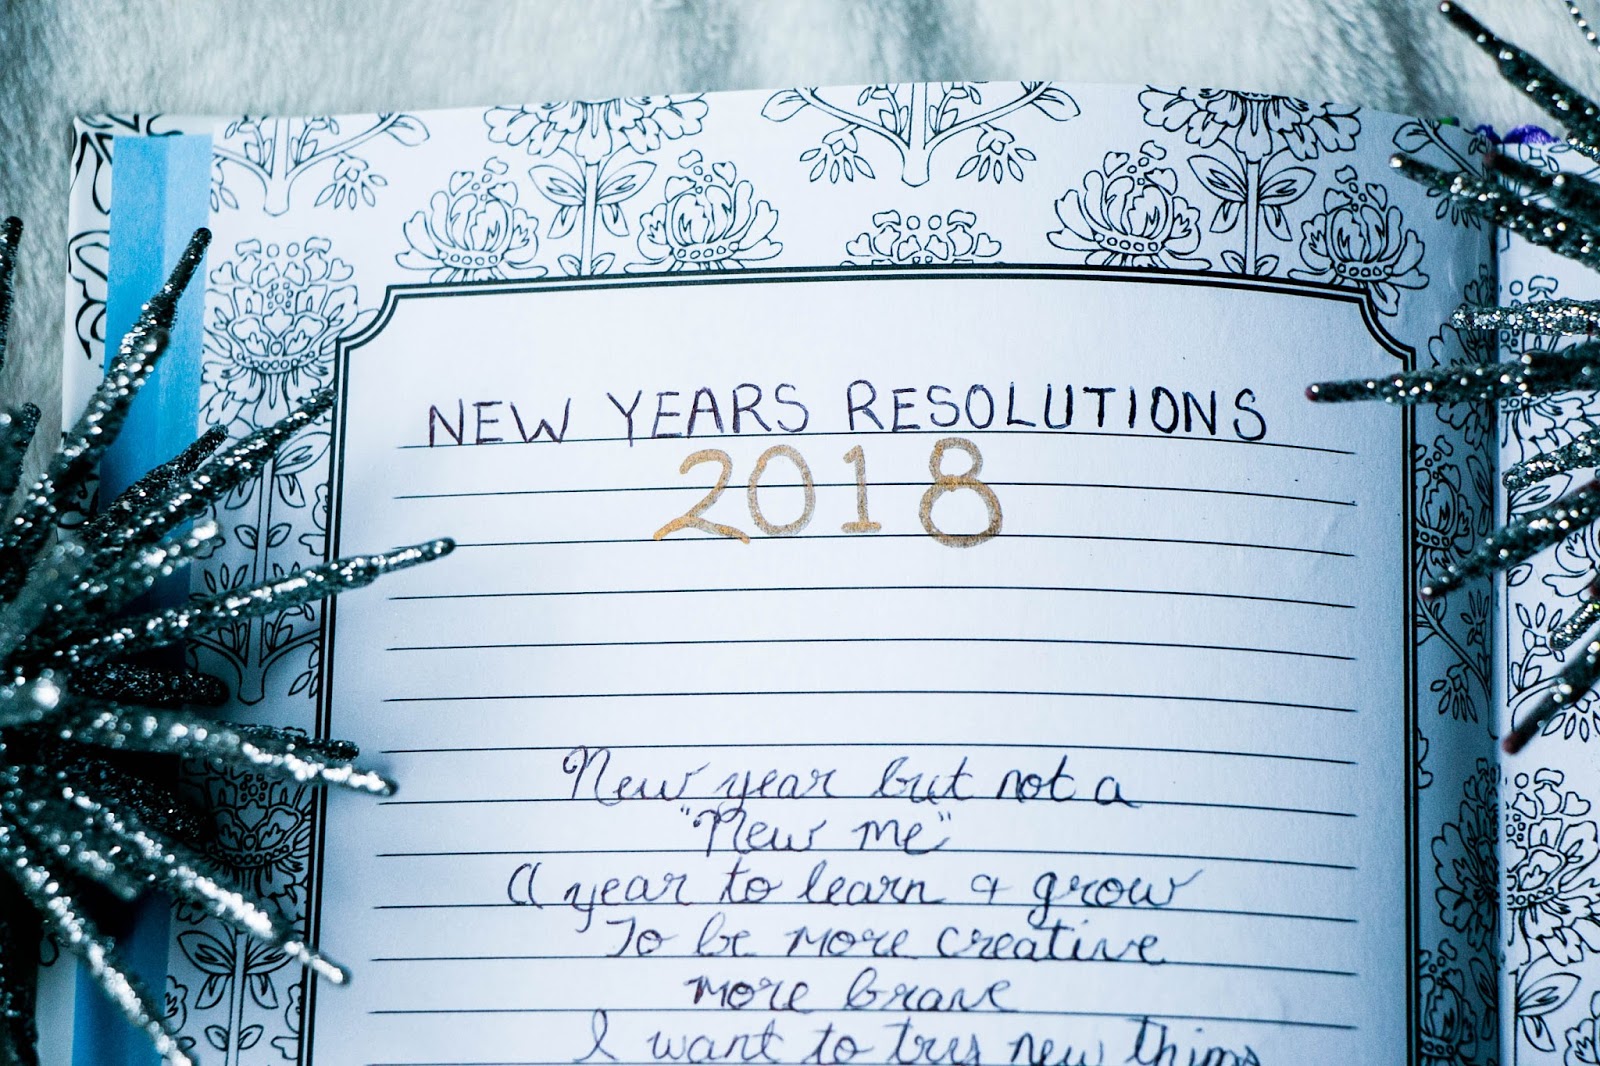 NEW YEARS RESOLUTIONS
2018
New year but not a
"New me"
A year to learn & grow
To be more creative
more brave
I want to try new things